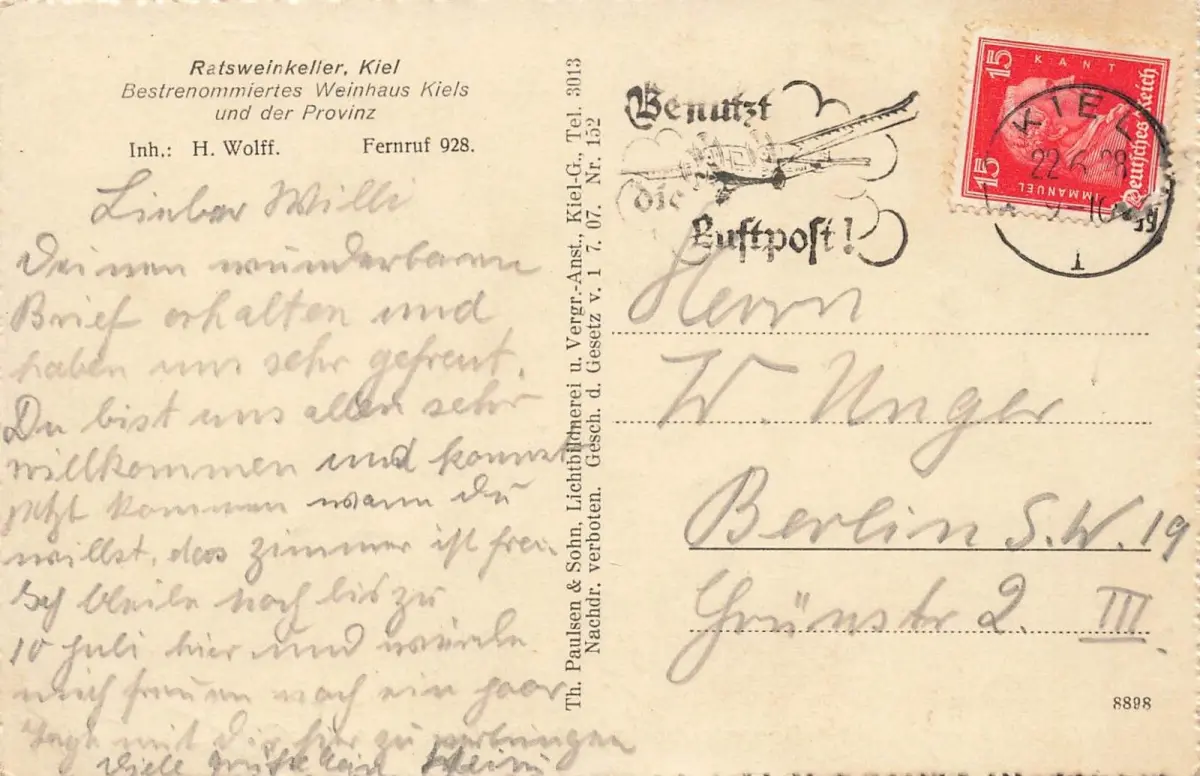 Ratsweinkeller, Kiel
Bestrenommiertes Weinhaus Kiels
und der Provinz
Inh.: H. Wolff. Fernruf 928.
Lieber Willi
Deinen wunderbaren
Brief erhalten und
haben uns sehr gefreut.
Du bist uns allen sehr
willkommen und kannst
jetzt kommen wann Du
willst, das Zimmer ist frei.
Ich bleibe noch bis zu
10 Juli hier und würde
mich freuen noch ein paar
Tage mit Dir hier zu verbringen
Viele Grüße
Th. Paulsen & Sohn, Lichtbildnerei u. Vergr.-Anst., Kiel-G., Tel. 3013
Nachdr. verboten. Gesch. d. Gesetz v. 1 7. 07. Nr. 152
Benutzt
die
Luftpost!
15 KANT 15
IMMANUEL
Deutsches Reich
KIEL
22.6.28
1
Herrn
W. Unger
Berlin S.W. 19
Grünstr 2. III
8898